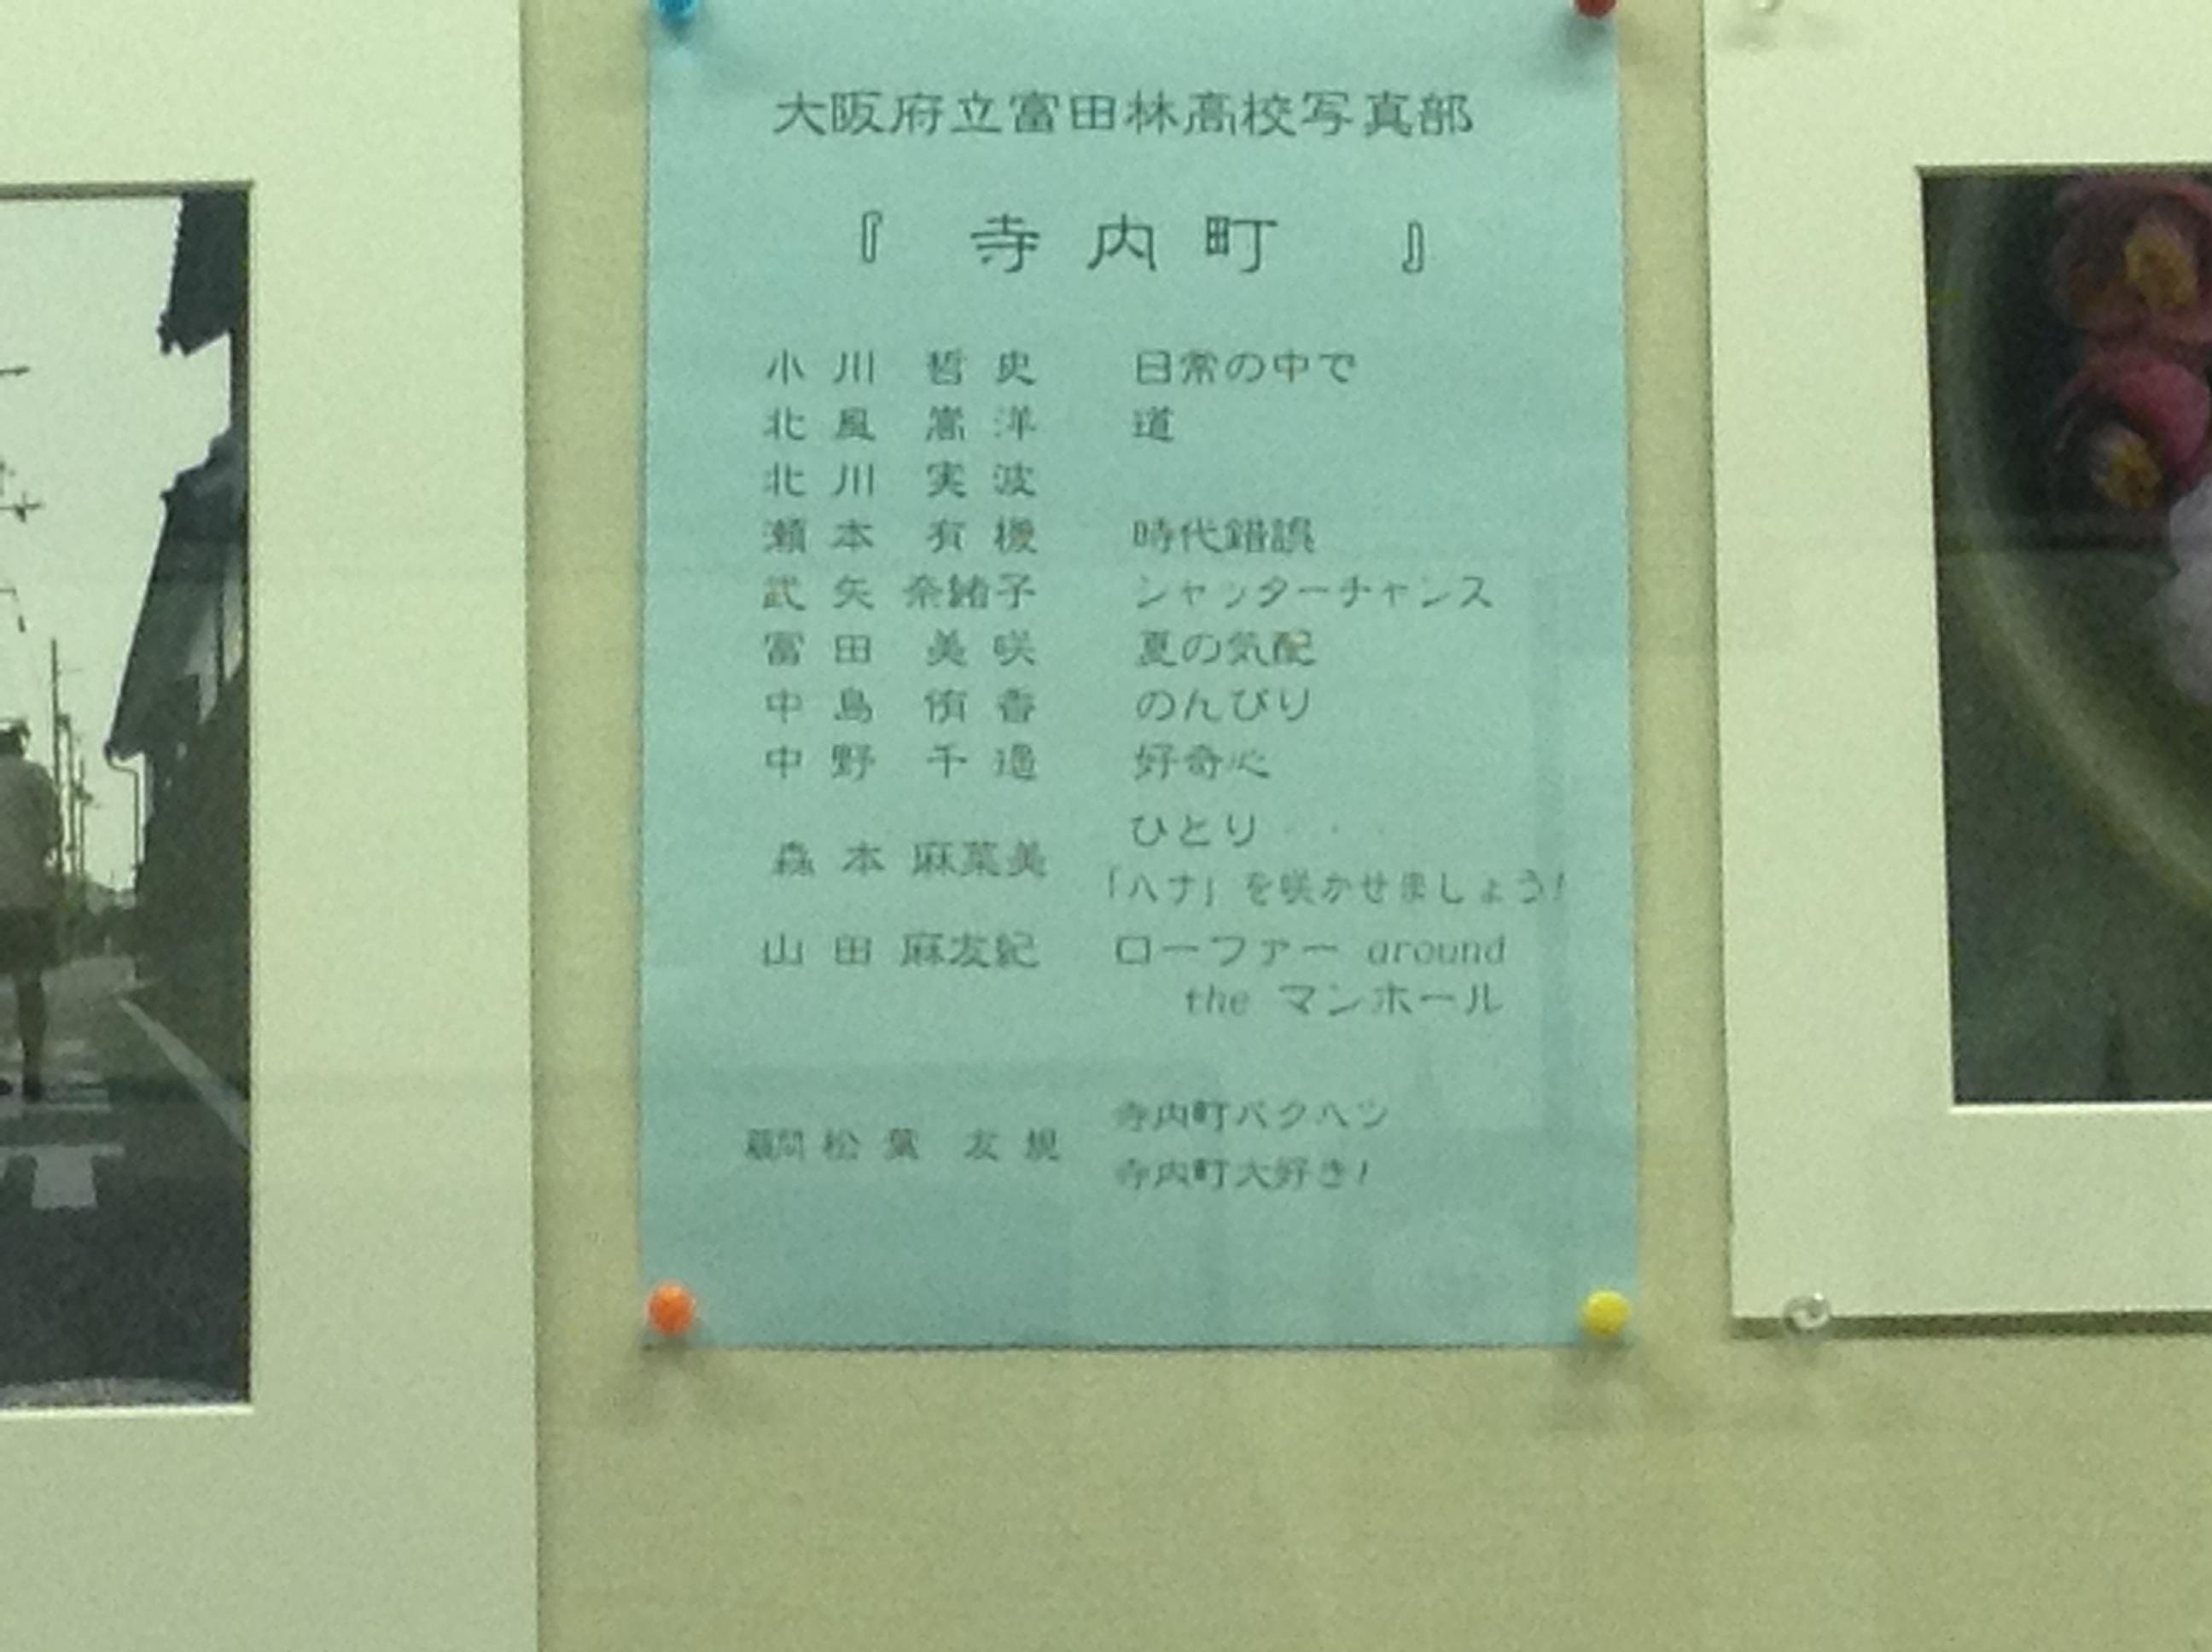 大阪府立富田林高校写真部
『 寺内町 』
小川 哲史 日常の中で
北風 嵩洋 道
北川 実波
瀬本 有機 時代錯誤
武矢 奈緒子 シャッターチャンス
冨田 美咲 夏の気配
中島 侑香 のんびり
中野 千遥 好奇心
ひとり・・・
森本 麻菜美
「ハナ」を咲かせましょう!
山田 麻友紀 ローファー around
the マンホール
寺内町バクハツ
顧問 松葉 友規
寺内町大好き!